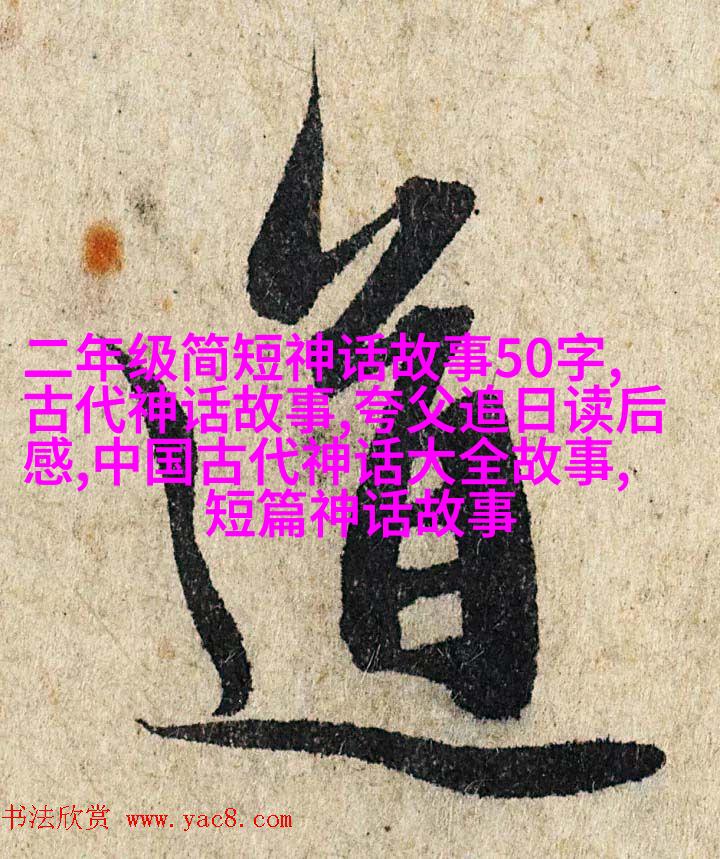 道
二年级简短神话故事50字,
古代神话故事,夸父追日读后
感,中国古代神话大全故事,
短篇神话故事
书法欣赏 www.yac8.com